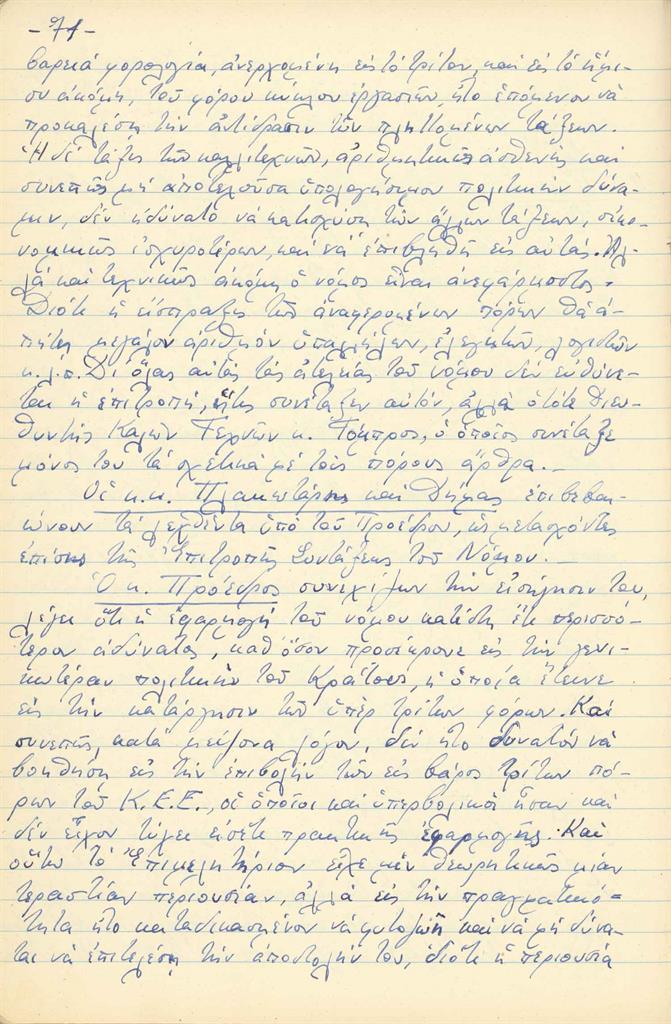 - 71 -
βαρειά φορολογία, ἀνερχομένη εἰς τό τρίτον, καί εἰς τό ἥμι-
συ ἀκόμη, τοῦ φόρου κύκλου ἐργασιῶν, ἦτο ἑπόμενον νά
προκαλέσῃ τήν ἀντίδρασιν τῶν πληττομένων τάξεων.
Ἡ δέ τάξις τῶν καλλιτεχνῶν, ἀριθμητικῶς ἀσθενής καί
συνεπῶς μή ἀποτελοῦσα ὑπολογήσιμον πολιτικήν δύνα-
μιν, δέν ἠδύνατο νά κατισχύσῃ τῶν ἄλλων τάξεων, οἰκο-
νομικῶς ἰσχυροτέρων, καί νά ἐπιβληθῇ εἰς αὐτάς. Ἀλ-
λά καί τεχνικῶς ἀκόμη ὁ νόμος εἶναι ἀνεφάρμοστος.
Διότι ἡ εἴσπραξις τῶν ἀναφερομένων πόρων θά ἀ-
πῄτει μεγάλον ἀριθμόν ὑπαλλήλων, ἐλεγκτῶν, λογιστῶν
κ.λ.π. Δι' ὅλας αὐτάς τάς ἀτελείας τοῦ νόμου δέν εὐθύνε-
ται ἡ ἐπιτροπή, ἥτις συνέταξεν αὐτόν, ἀλλά ὁ τότε Διευ-
θυντής Καλῶν Τεχνῶν κ. Τόμπρος, ὁ ὁποῖος συνέταξε
μόνος του τά σχετικά μέ τούς πόρους ἄρθρα.-
Οἱ κ.κ. Πλακωτάρης καί Δήμας ἐπιβεβαι-
ώνουν τά λεχθέντα ὑπό τοῦ Προέδρου, ὡς μετασχόντες
ἐπίσης τῆς Ἐπιτροπῆς Συντάξεως τοῦ Νόμου.-
Ὁ κ. Πρόεδρος συνεχίζων τήν εἰσήγησίν του,
λέγει ὅτι ἡ ἐφαρμογή τοῦ νόμου κατέστη ἔτι περισσό-
τερον ἀδύνατος, καθ' ὅσον προσέκρουε εἰς τήν γενι-
κωτέραν πολιτικήν τοῦ Κράτους, ἡ ὁποία ἔτεινε
εἰς τήν κατάργησιν τῶν ὑπέρ τρίτων φόρων. Καί
συνεπῶς, κατά μείζονα λόγον, δέν ἦτο δυνατόν νά
βοηθήσῃ εἰς τήν ἐπιβολήν τῶν εἰς βάρος τρίτων πό-
ρων τοῦ Κ.Ε.Ε., οἱ ὁποῖοι καί ὑπερβολικοί ἦσαν καί
δέν εἶχον τύχει εἰσέτι πρακτικῆς ἐφαρμογῆς. Καί
οὕτω τό Ἐπιμελητήριον εἶχε μέν θεωρητικῶς μίαν
τεραστίαν περιουσίαν, ἀλλά εἰς τήν πραγματικό-
τητα ἦτο καταδικασμένον νά φυτοζωῇ καί νά μή δύνα-
ται νά ἐπιτελέσῃ τήν ἀποστολήν του, διότι ἡ περιουσία